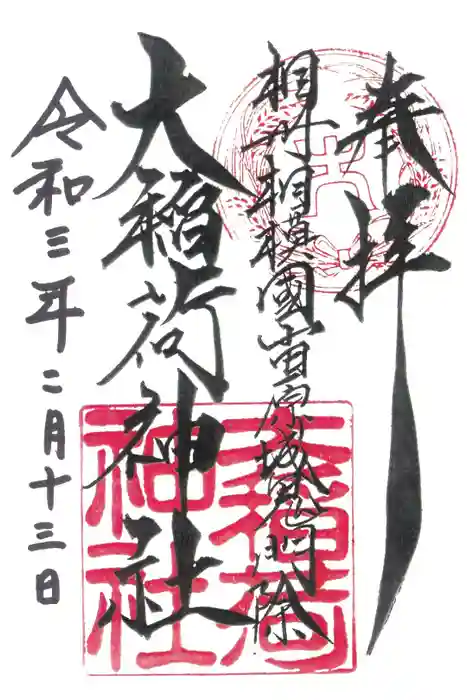 奉拝
相州相模國小田原城鬼門除
大稲荷神社
令和三年二月十三日
大稲荷
神社